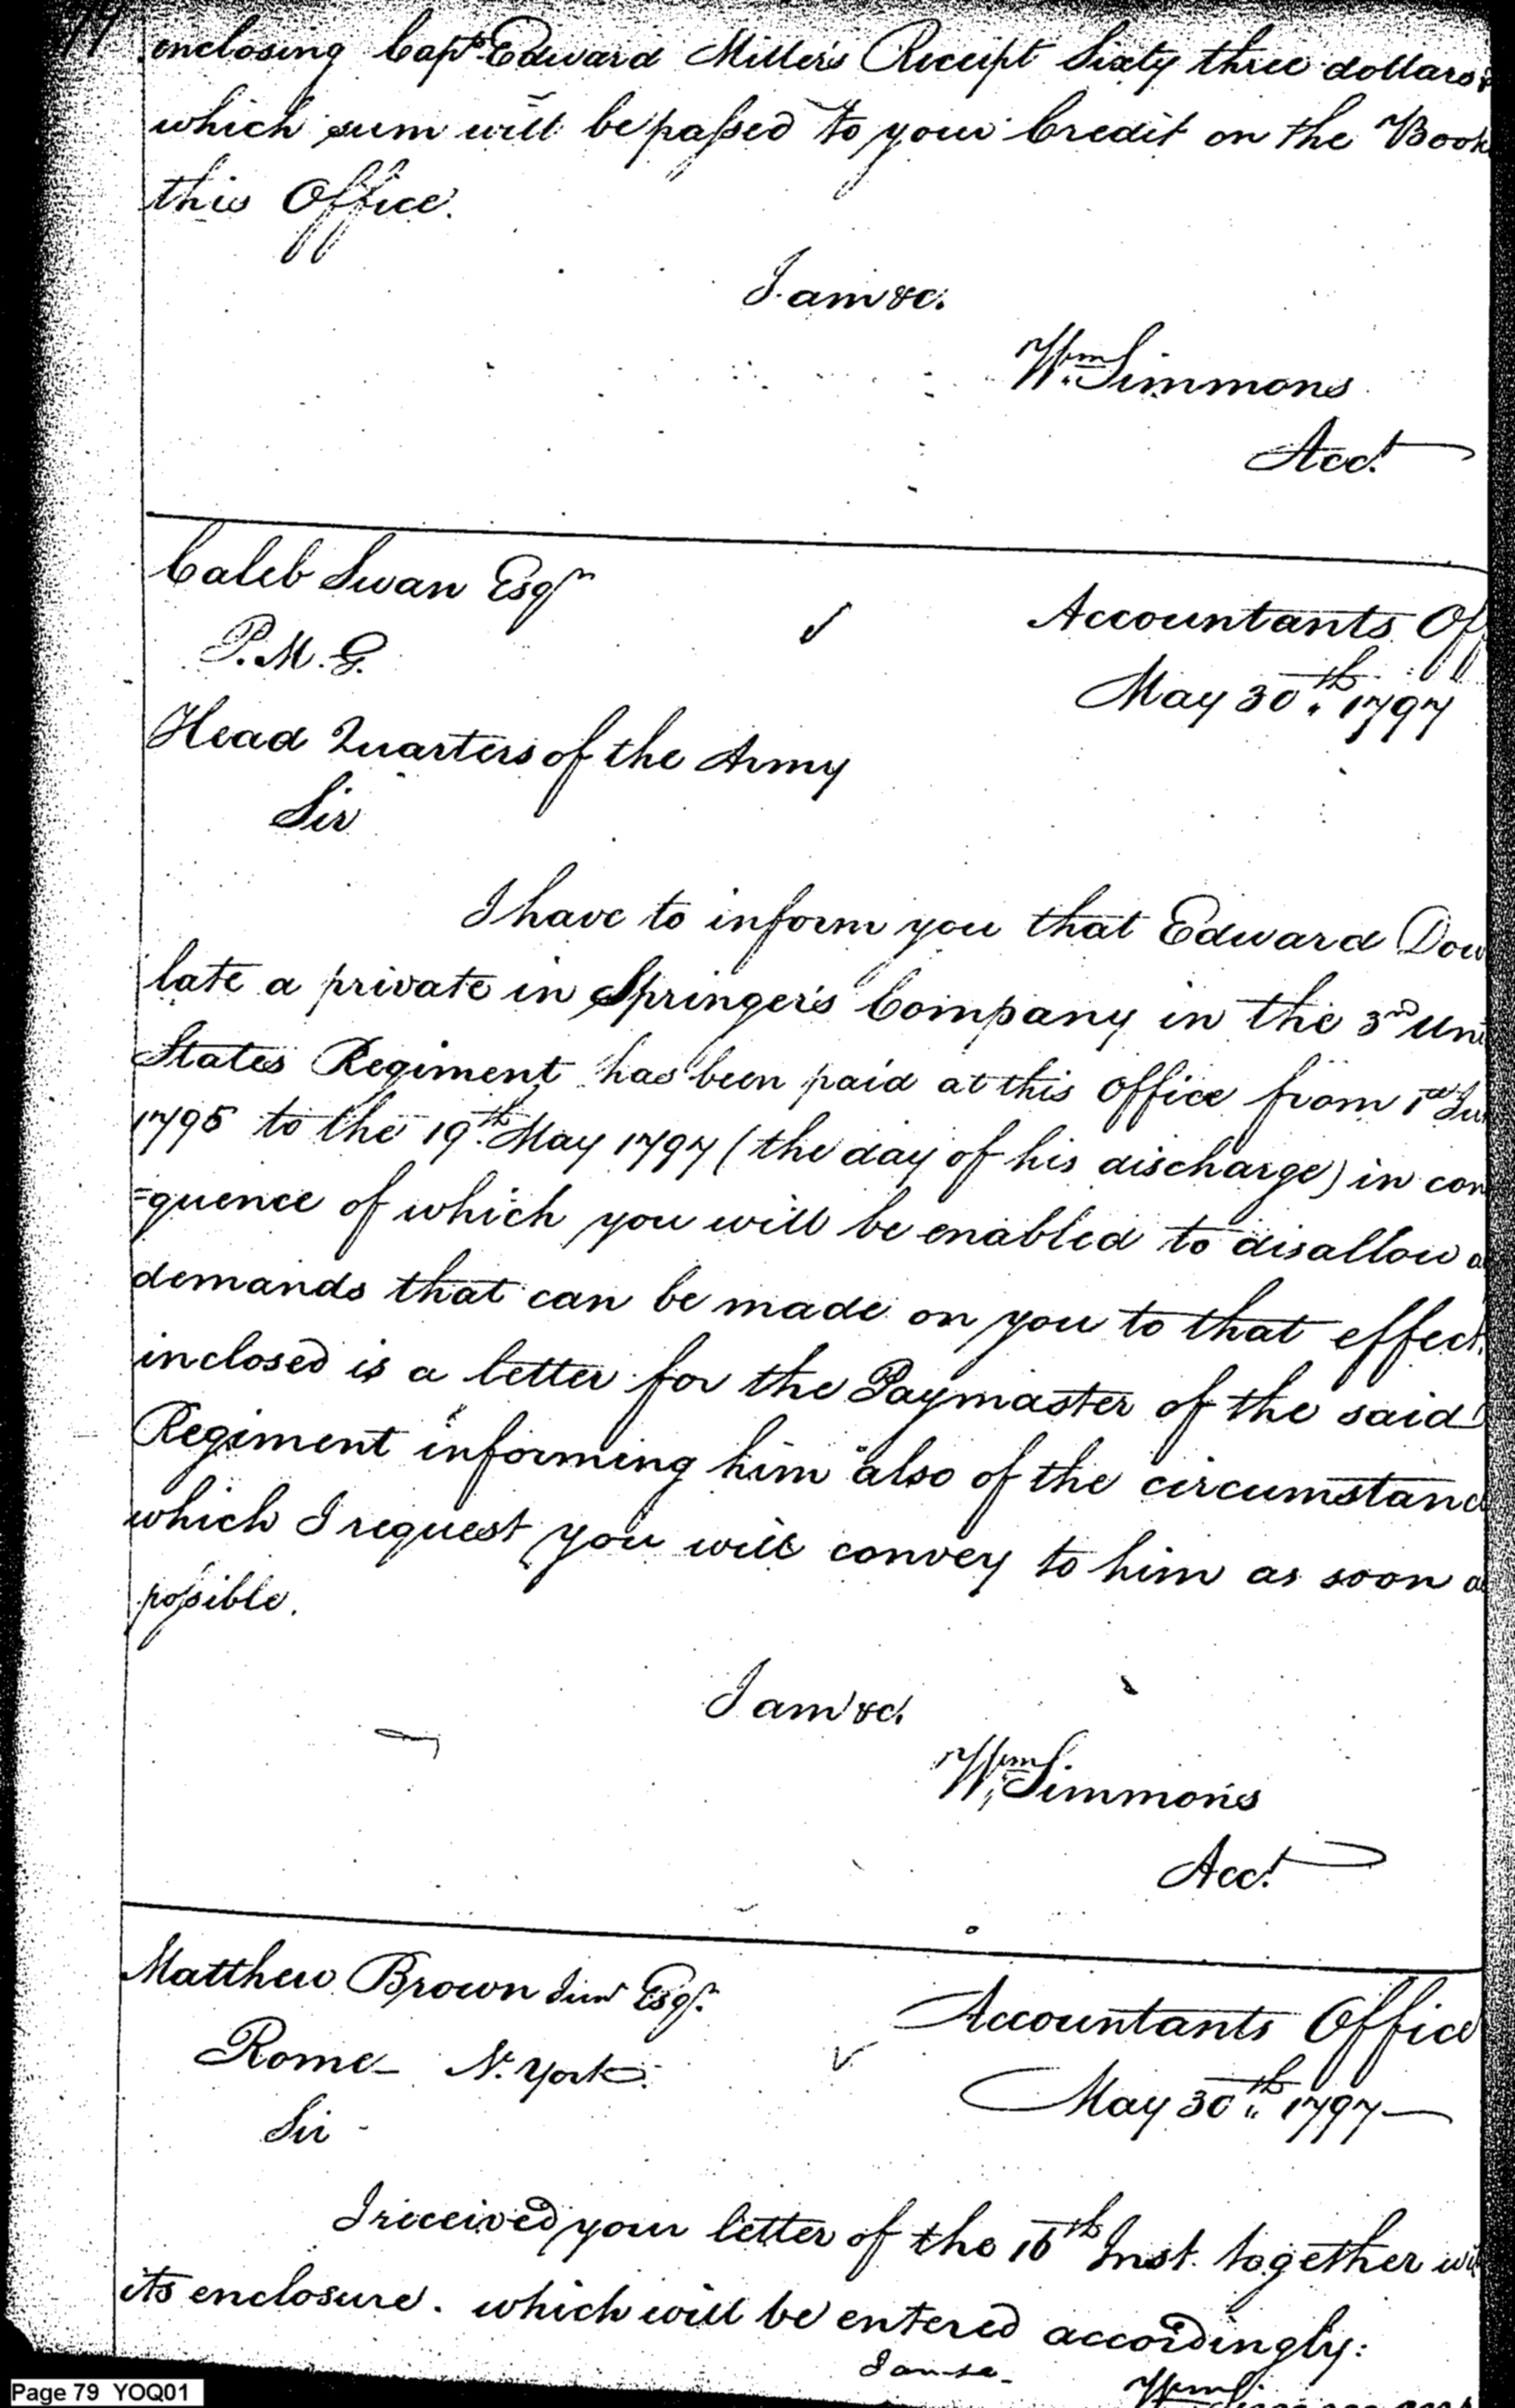 enclosing Capt. Edward Miller's Receipt Sixty three dollars
which sum will be passed to your Credit on the Book
this Office.
I am &c.
Wm. Simmons
Acct.
Caleb Swan Esqr
Accountants Off
P.M.G.
May 30th. 1797
Head Quarters of the Army
Sir
I have to inform you that Edward Dow
late a private in Springer's Company in the 3rd Uni
States Regiment has been paid at this office from 1st
1795 to the 19th. May 1797 (the day of his discharge) in con
=quence of which you will be enabled to disallow a
demands that can be made on you to that effect.
inclosed is a letter for the Paymaster of the said
Regiment informing him also of the circumstanc
which I request you will convey to him as soon a
possible.
I am &c.
Wm. Simmons
Acct.
Matthew Brown Junr Esqr.
Accountants Office
Rome N. York.
May 30th. 1797
Sir
I received your letter of the 16th Inst. together wi
its enclosure. which will be entered accordingly:
I am &c.
Wm. Simmons
Page 79 YOQ01